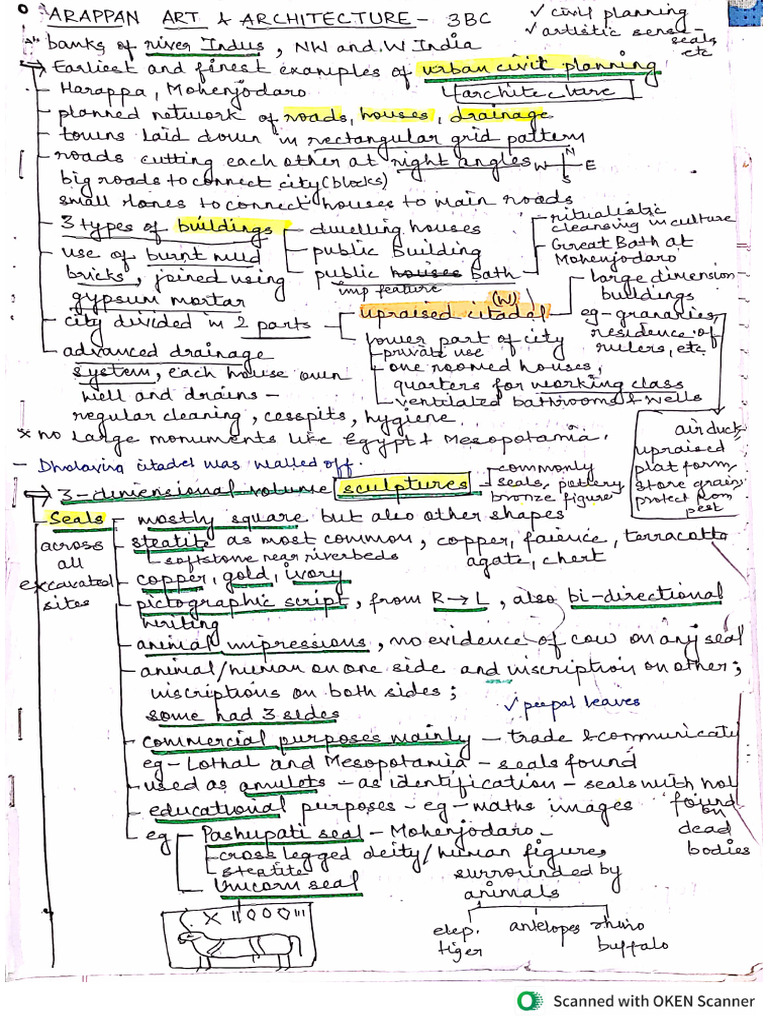 ARAPPAN ART & ARCHITECTURE - 3BC
✓ civil planning
✓ artistic sense - seals etc
banks of river Indus, NW and W India
→ Earliest and finest examples of urban civil planning
↳ architecture
Harappa, Mohenjodaro
planned network of roads, houses, drainage
towns laid down in rectangular grid pattern
roads cutting each other at right angles
N
W E
S
big roads to connect city (blocks)
small lanes to connect houses to main roads
3 types of buildings
dwelling houses
public building
public houses bath
imp feature
ritualistic cleansing in culture
Great Bath at Mohenjodaro
use of burnt mud
bricks, joined using
gypsum mortar
city divided in 2 parts
upraised citadel (W)
large dimension buildings
eg - granaries, residence of rulers, etc
lower part of city
private use
one roomed houses,
quarters for working class
ventilated bathrooms & wells
advanced drainage
system, each house own
well and drains -
regular cleaning, cesspits, hygiene
air duct,
upraised
platform,
store grain,
protect from
pest
* no large monuments like Egypt & Mesopotamia.
- Dholavira citadel was walled off.
→ 3-dimensional volume sculptures
commonly
seals, pottery,
bronze figure
Seals
across
all
excavated
sites
mostly square but also other shapes
steatite as most common, copper, faience, terracotta
agate, chert
softstone near riverbeds
copper, gold, ivory
pictographic script, from R→L, also bi-directional
writing
animal impressions, no evidence of cow on any seal
animal/human on one side and inscription on other;
inscriptions on both sides;
some had 3 sides
✓ peepal leaves
commercial purposes mainly - trade & communicati
eg - Lothal and Mesopotamia - seals found
used as amulets - as identification - seals with hol
found on dead bodies
educational purposes - eg - maths images
eg
Pashupati seal - Mohenjodaro -
cross legged deity/human figure,
surrounded by
animals
steatite
Unicorn seal
elep.
tiger
antelopes
rhino
buffalo
Scanned with OKEN Scanner